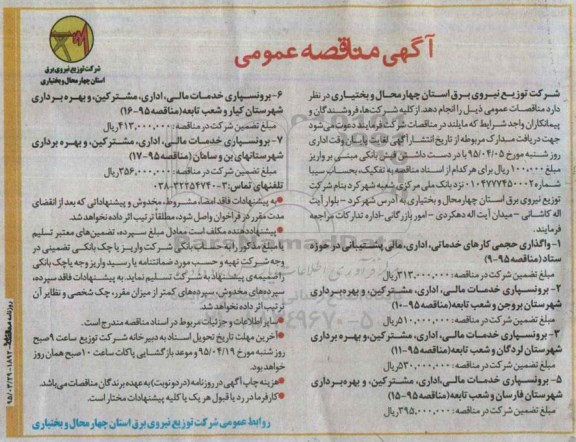 آگهی مناقصه عمومی
شرکت توزیع نیروی برق
استان چهارمحال و بختیاری
شرکت توزیع نیروی برق استان چهارمحال و بختیاری در نظر
دارد مناقصات عمومی ذیل را انجام دهد از کلیه شرکت‌ها، فروشندگان و
پیمانکاران واجد شرایط که مایلند در مناقصات شرکت فرمایند دعوت می‌شود
جهت دریافت مدارک مربوطه از تاریخ انتشار آگهی لغایت پایان وقت اداری
روز شنبه مورخ ۹۵/۰۴/۰۵ با در دست داشتن فیش بانکی مبنی بر واریز
۱۰۰,۰۰۰ ریال برای هر کدام از اسناد مناقصه به تفکیک، بحساب سیبا
شماره ۰۱۰۴۷۷۷۴۵۰۰۰۲ نزد بانک ملی مرکزی شعبه شهرکرد بنام شرکت
توزیع نیروی برق استان چهارمحال و بختیاری به آدرس شهرکرد - بلوار آیت
اله کاشانی - میدان آیت اله دهکردی - امور بازرگانی - اداره تدارکات مراجعه
فرمایند.
۱- واگذاری حجمی کارهای خدماتی، اداری، مالی پشتیبانی در حوزه
ستاد (مناقصه ۹۵-۹)
مبلغ تضمین شرکت در مناقصه: ۳۱۳,۰۰۰,۰۰۰ ریال
۲- برونسپاری خدمات مالی، اداری، مشترکین، و بهره برداری
شهرستان بروجن و شعب تابعه (مناقصه ۹۵-۱۰)
مبلغ تضمین شرکت در مناقصه: ۵۱۰,۰۰۰,۰۰۰ ریال
۳- برونسپاری خدمات مالی، اداری، مشترکین، و بهره برداری
شهرستان لردگان و شعب تابعه (مناقصه ۹۵-۱۱)
مبلغ تضمین شرکت در مناقصه: ۵۳۰,۰۰۰,۰۰۰ ریال
۵- برونسپاری خدمات مالی، اداری، مشترکین، و بهره برداری
شهرستان فارسان و شعب تابعه (مناقصه ۹۵-۱۵)
مبلغ تضمین شرکت در مناقصه: ۳۹۵,۰۰۰,۰۰۰ ریال
۶- برونسپاری خدمات مالی، اداری، مشترکین، و بهره برداری
شهرستان کیار و شعب تابعه (مناقصه ۹۵-۱۶)
مبلغ تضمین شرکت در مناقصه: ۴۱۳,۰۰۰,۰۰۰ ریال
۷- برونسپاری خدمات مالی، اداری، مشترکین، و بهره برداری
شهرستانهای بن و سامان (مناقصه ۹۵-۱۷)
مبلغ تضمین شرکت در مناقصه: ۳۵۶,۰۰۰,۰۰۰ ریال
تلفنهای تماس: ۳-۳۲۲۵۴۷۴۰-۰۳۸
به پیشنهادات فاقد امضاء، مشروط، مخدوش و پیشنهاداتی که بعد از انقضای
مدت مقرر در فراخوان واصل شود، مطلقاً ترتیب اثر داده نخواهد شد.
پیشنهاددهنده مکلف است معادل مبلغ سپرده، تضمین‌های معتبر تسلیم
یا مبلغ مذکور را به حساب بانکی شرکت واریز یا چک بانکی تضمینی در
وجه شرکت تهیه و حسب مورد ضمانتنامه یا رسید واریز وجه یا چک بانکی
را ضمیمه‌ی پیشنهاد به شرکت تسلیم نماید. به پیشنهادات فاقد سپرده،
سپرده‌های مخدوش، سپرده‌های کمتر از میزان مقرر، چک شخصی و نظایر آن
ترتیب اثر داده نخواهد شد.
سایر اطلاعات و جزئیات مربوط در اسناد مناقصه مندرج است.
آخرین مهلت تاریخ تحویل اسناد به دبیرخانه شرکت توزیع ساعت ۹ صبح
روز شنبه مورخ ۹۵/۰۴/۱۹ و موعد بازگشایی پاکات ساعت ۱۰ صبح همان روز
خواهد بود.
هزینه چاپ آگهی در روزنامه (در دو نوبت) به عهده برندگان مناقصات می‌باشد.
کارفرما در رد یا قبول هر یک یا کلیه پیشنهادات مختار است.
روابط عمومی شرکت توزیع نیروی برق استان چهارمحال و بختیاری